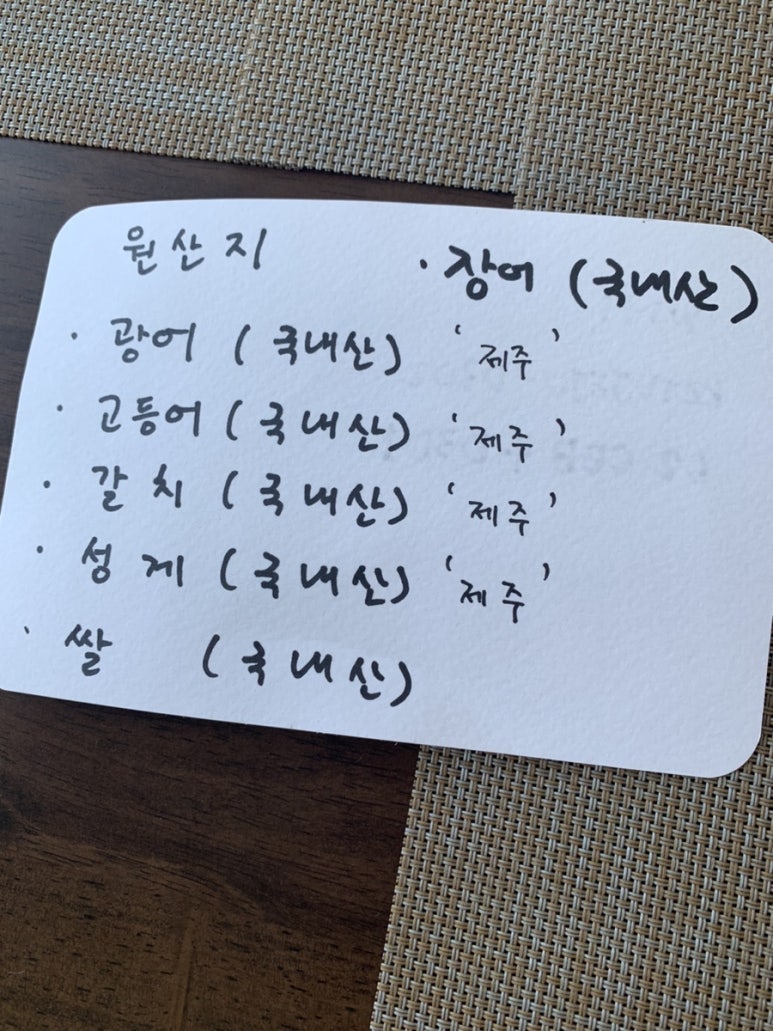 원산지
· 장어 (국내산)
· 광어 (국내산) '제주'
· 고등어 (국내산) '제주'
· 갈치 (국내산) '제주'
· 성게 (국내산) '제주'
· 쌀 (국내산)